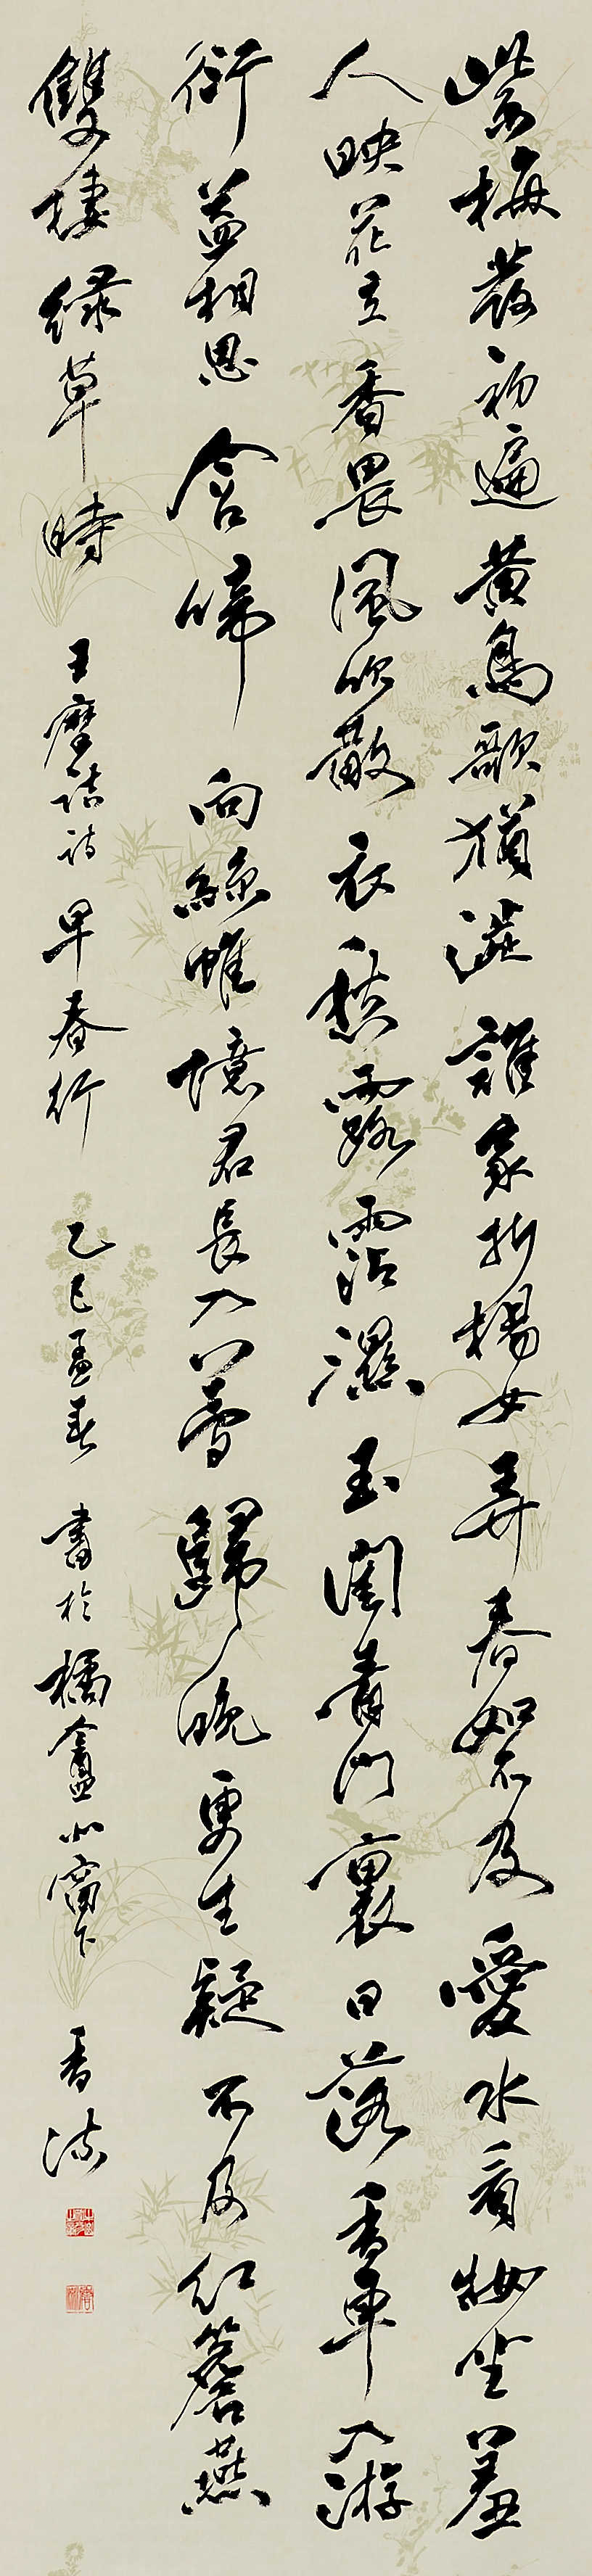 紫梅發初遍黃鳥歌猶澀誰家折楊女弄春如不及愛水看妝坐羞
人映花立香畏風吹散衣愁露霑濕玉閨青門裏日落香車入游
衍益相思含啼向綵帷憶君長入夢歸晚更生疑不及紅簷燕
雙棲綠草時 王摩詰詩早春行 乙巳孟春 書於橘盦北窗下 香